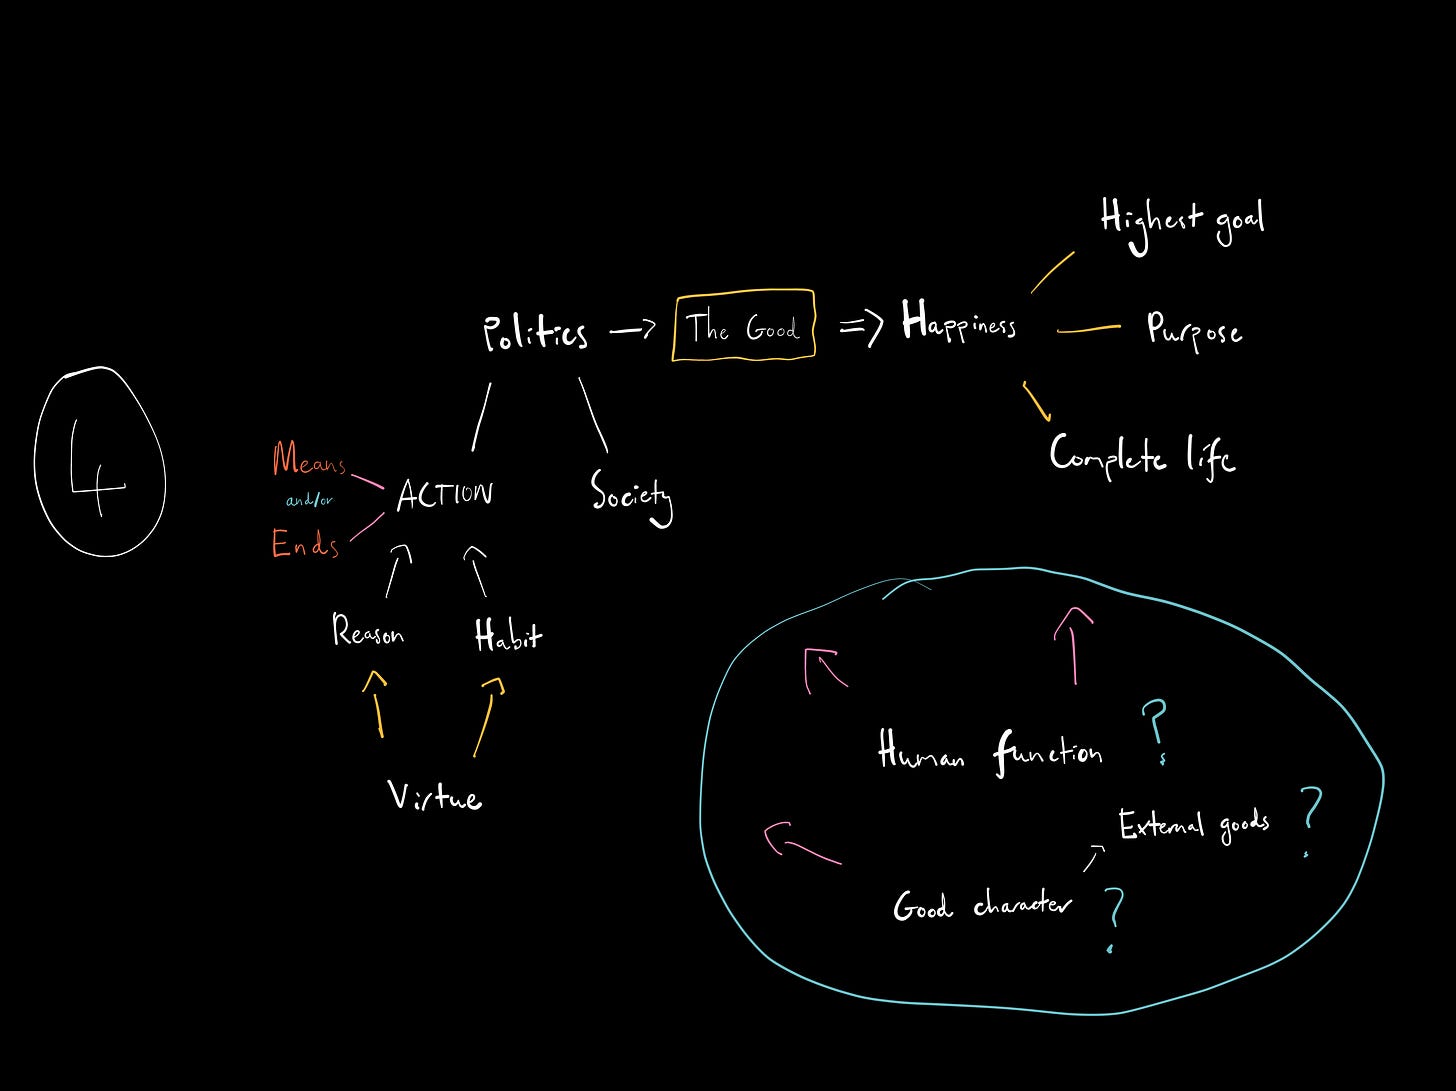 4
Highest goal
Politics → The Good ⇒ Happiness
Purpose
Complete life
Means
and/or
Ends
ACTION
Society
Reason
Habit
Virtue
Human function ?
External goods ?
Good character ?